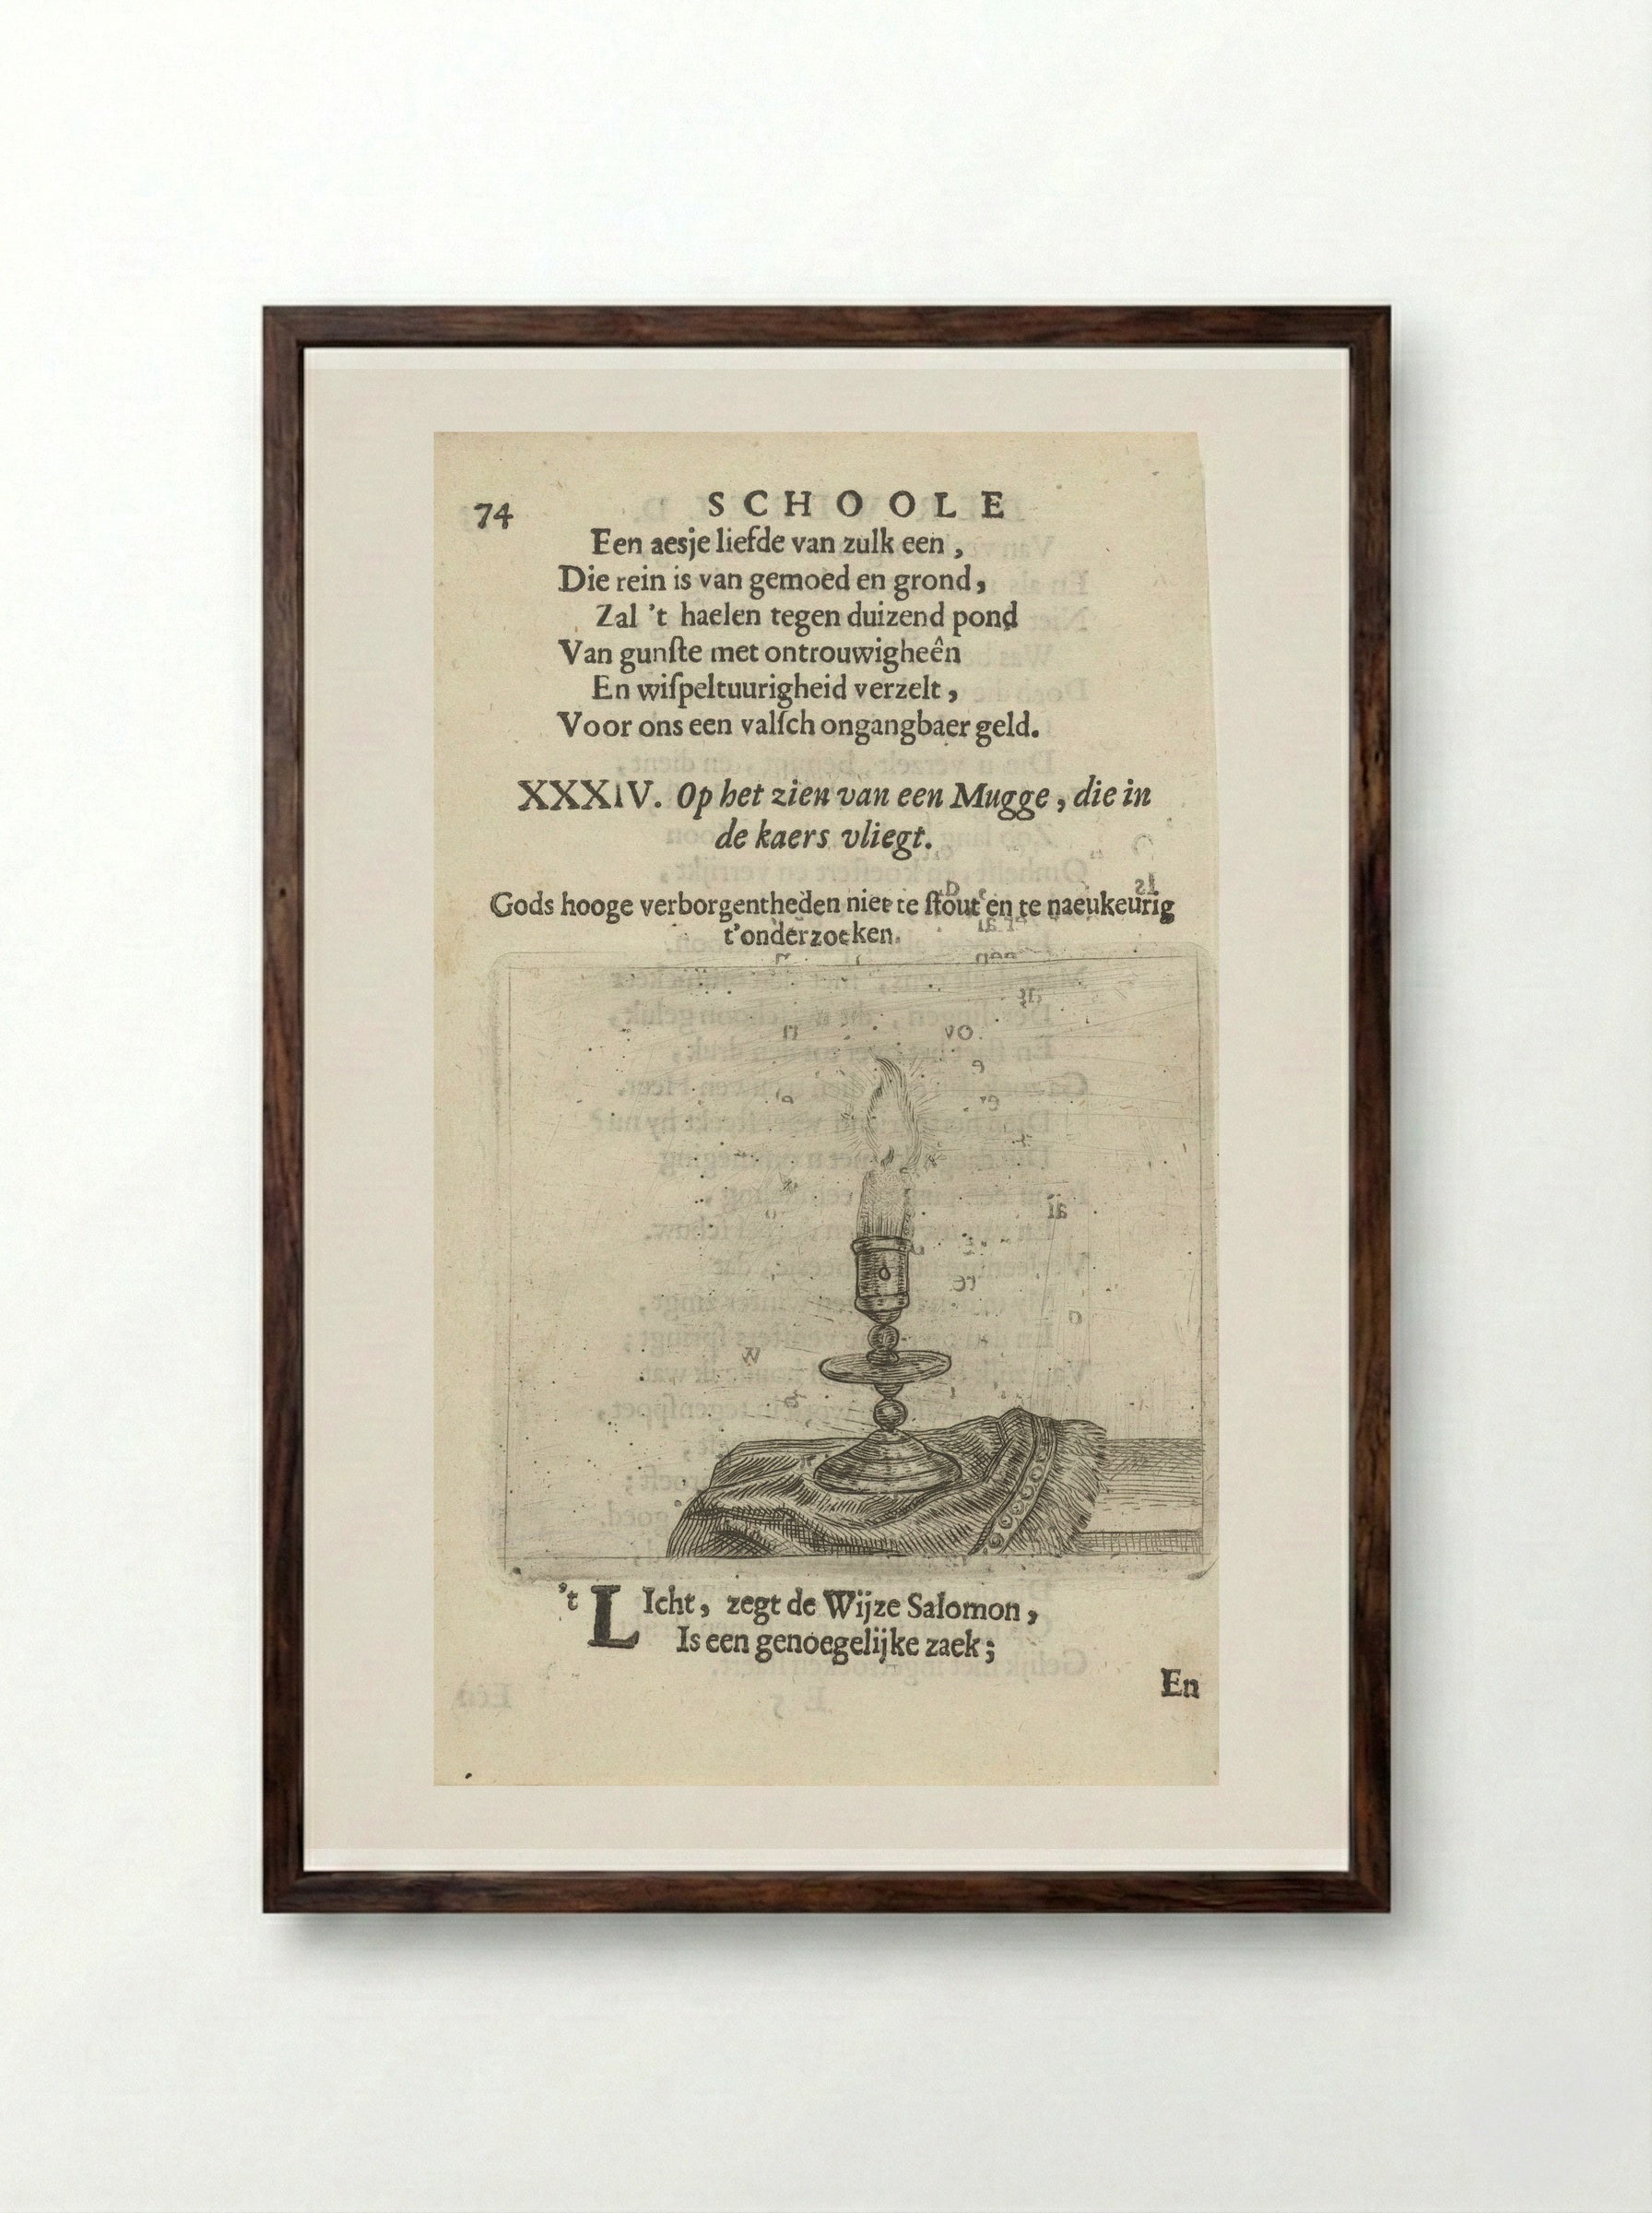 74 SCHOOLE
Een aesje liefde van zulk een,
Die rein is van gemoed en grond,
Zal 't haelen tegen duizend pond
Van gunſte met ontrouwigheên
En wiſpeltuurigheid verzelt,
Voor ons een valſch ongangbaer geld.
XXXIV. Op het zien van een Mugge, die in
de kaers vliegt.
Gods hooge verborgentheden niet te ſtout en te naeukeurig
t'onderzoeken.
't LIcht, zegt de Wijze Salomon,
Is een genoegelijke zaek;
En